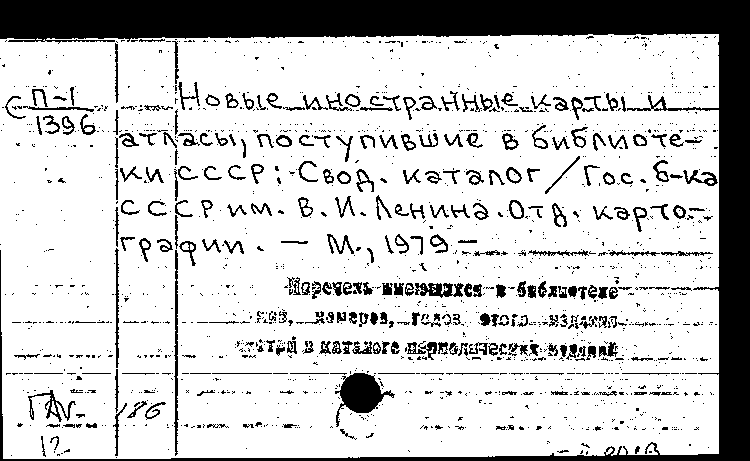 С П-1
1396
Новые иностранные карты и
атласы, поступившие в библиоте-
ки СССР: Свод. каталог / Гос. б-ка
СССР им. В. И. Ленина. Отд. карто-
графии. — М., 1979 —
Перечень имеющихся в библиотеке
номеров, годов этого издания
смотри в каталоге периодических изданий
186
12